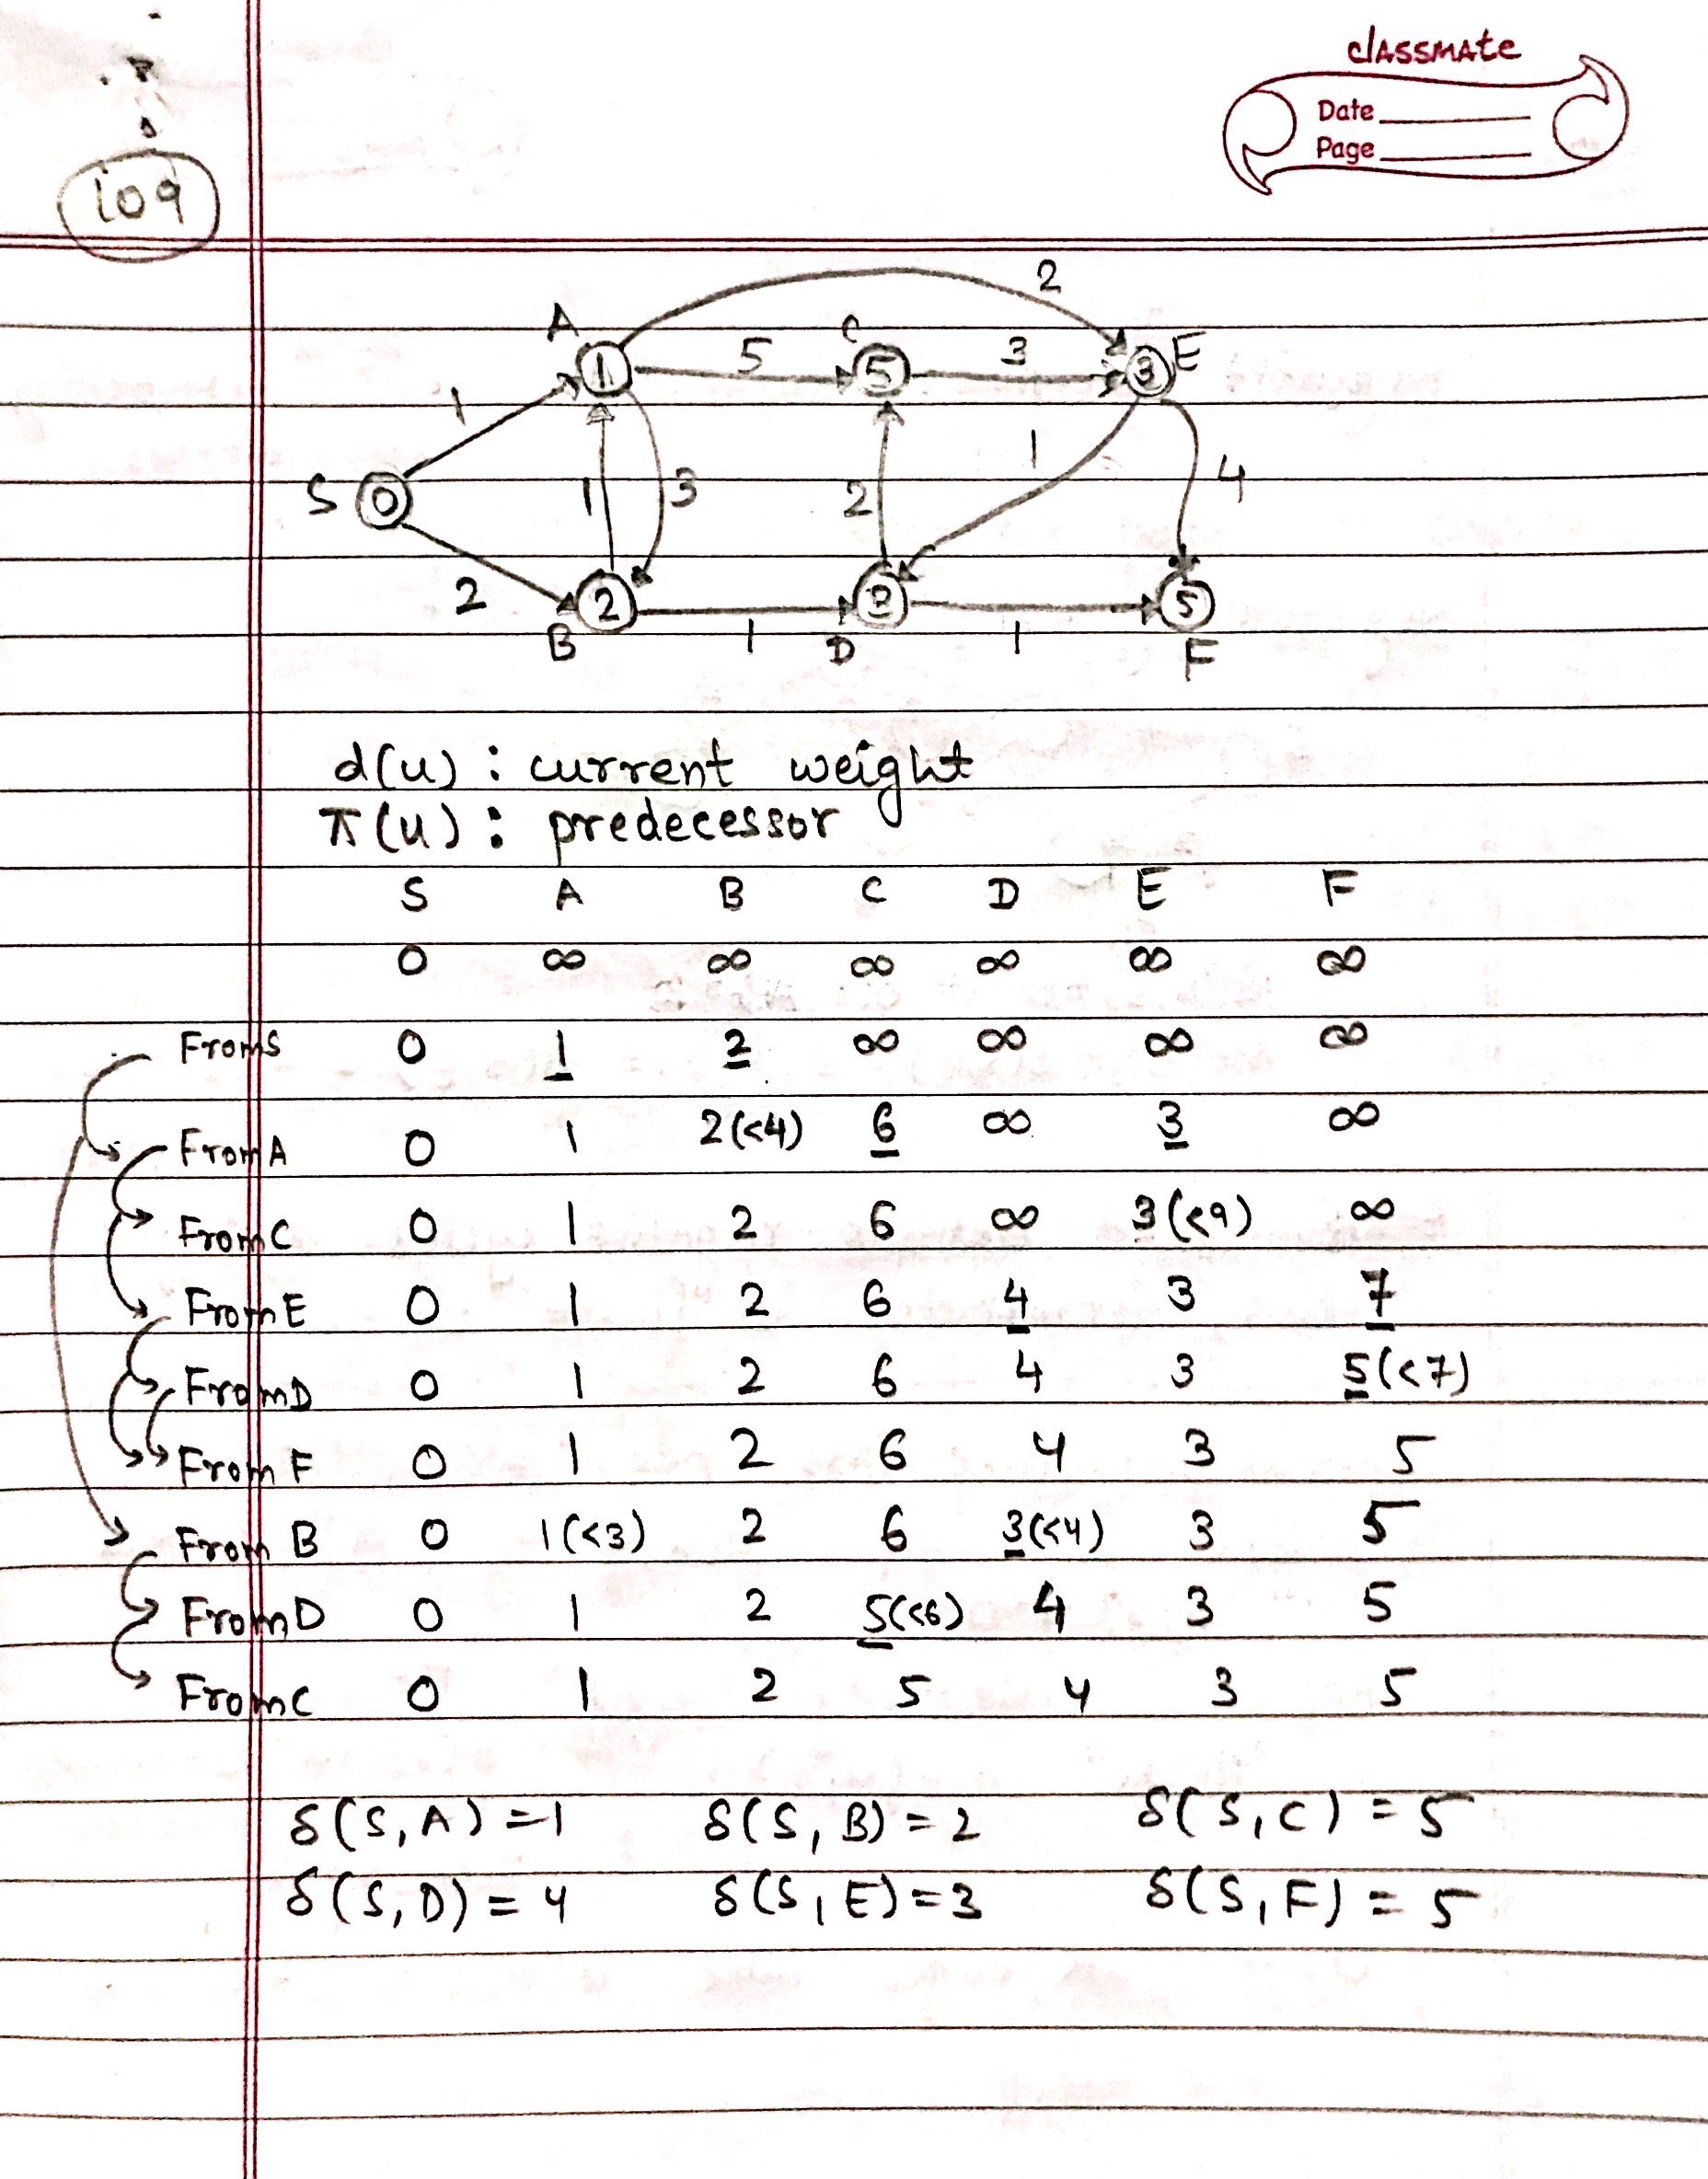 classmate
Date
Page
109
2
A C E
1 5 5 3 3
1 1 4
S 0 1 3 2
2 2 3 5
B 1 D 1 F
d(u) : current weight
π(u) : predecessor
S A B C D E F
0 ∞ ∞ ∞ ∞ ∞ ∞
From S 0 1 2 ∞ ∞ ∞ ∞
From A 0 1 2(<4) 6 ∞ 3 ∞
From C 0 1 2 6 ∞ 3(<9) ∞
From E 0 1 2 6 4 3 7
From D 0 1 2 6 4 3 5(<7)
From F 0 1 2 6 4 3 5
From B 0 1(<3) 2 6 3(<4) 3 5
From D 0 1 2 5(<6) 4 3 5
From C 0 1 2 5 4 3 5
δ(S,A) = 1 δ(S,B) = 2 δ(S,C) = 5
δ(S,D) = 4 δ(S,E) = 3 δ(S,F) = 5